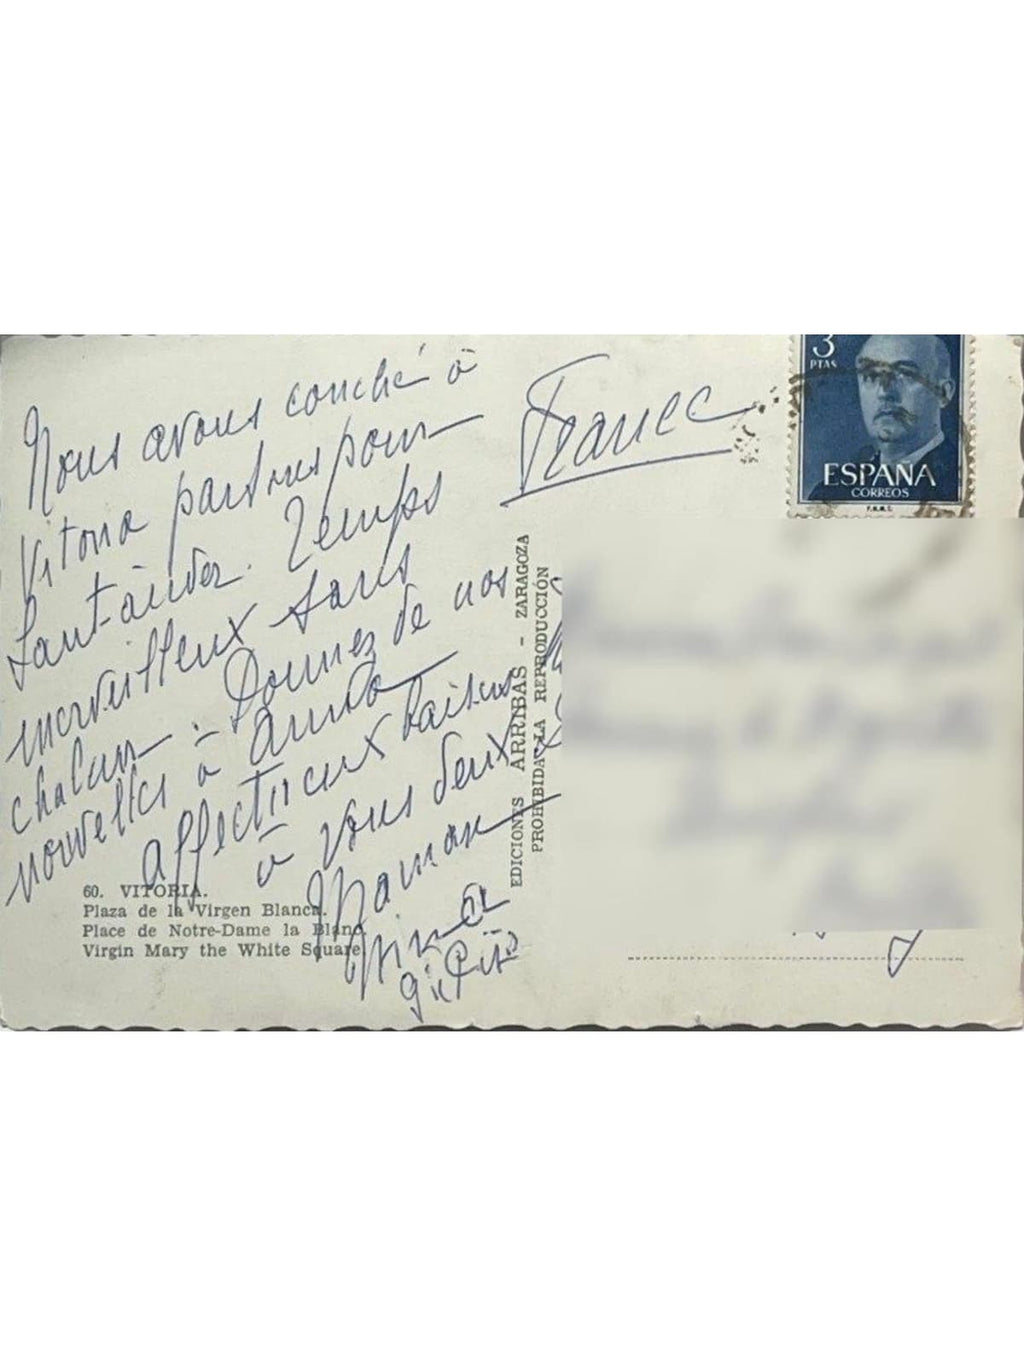 Nous avons couché à
Vitoria partons pour
Santander. Temps
merveilleux sans
chaleur - Donnez de nos
nouvelles à
affectueux baisers
à vous deux
Maman
France
3
PTAS
ESPAÑA
CORREOS
F.N.M.T.
EDICIONES ARRIBAS - ZARAGOZA
PROHIBIDA LA REPRODUCCIÓN
60. VITORIA.
Plaza de la Virgen Blanca.
Place de Notre-Dame la Blanc.
Virgin Mary the White Square